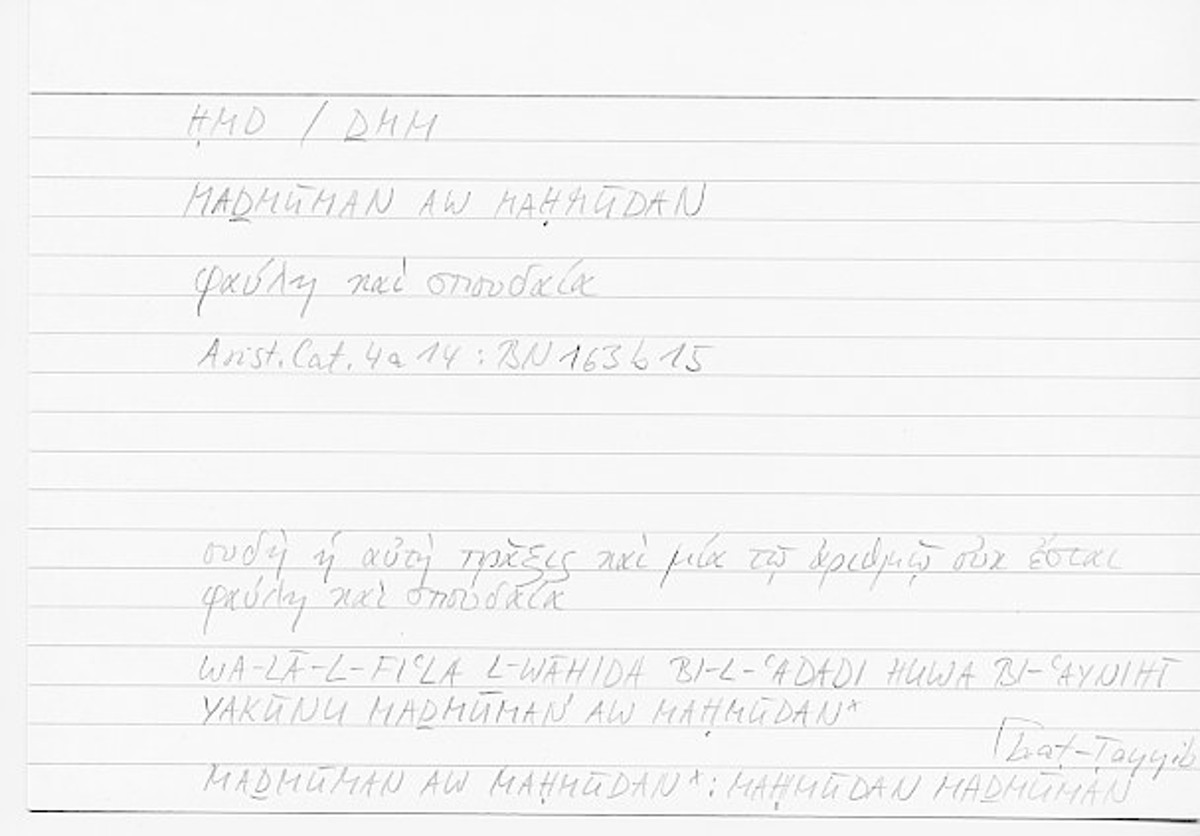 ḤMD / ḎMM
MAḎMŪMAN AW MAḤMŪDAN
φαύλη καὶ σπουδαία
Arist. Cat. 4a14 : BN 163b15
οὐδὴ ἡ αὐτὴ πρᾶξις καὶ μία τῷ ἀριθμῷ οὐκ ἔσται
φαύλη καὶ σπουδαία
WA-LĀ-L-FIʿLA L-WĀHIDA BI-L-ʿADADI HUWA BI-ʿAYNIHĪ
YAKŪNU MAḎMŪMAN AW MAḤMŪDAN*
aṭ-Ṭayyib
MAḎMŪMAN AW MAḤMŪDAN* : MAḤMŪDAN MAḎMŪMAN